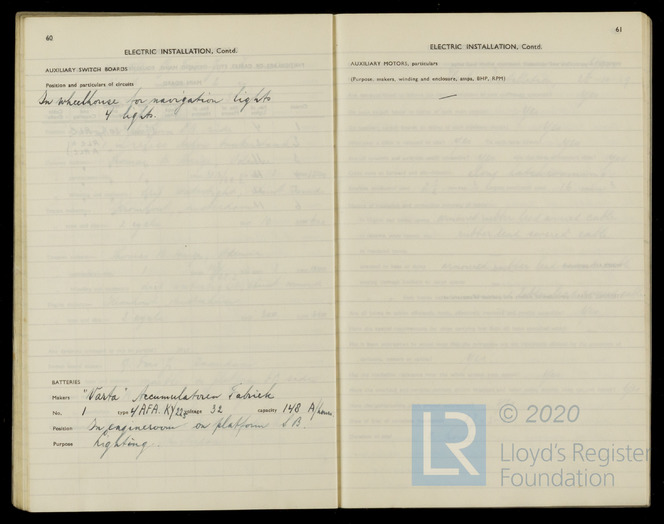 60
ELECTRIC INSTALLATION, Contd.
AUXILIARY SWITCH BOARDS
Position and particulars of circuits
In wheelhouse for navigation lights
4 lights.
BATTERIES
Makers "Varta" Accumulatoren Fabriek
No. 1 type 4 AFA. KY225 voltage 32 capacity 148 A/hours
Position In engineroom on platform S B.
Purpose Lighting.
61
ELECTRIC INSTALLATION, Contd.
AUXILIARY MOTORS, particulars
(Purpose, makers, winding and enclosure, amps, BHP, RPM)
—
LR
© 2020
Lloyd's Register
Foundation